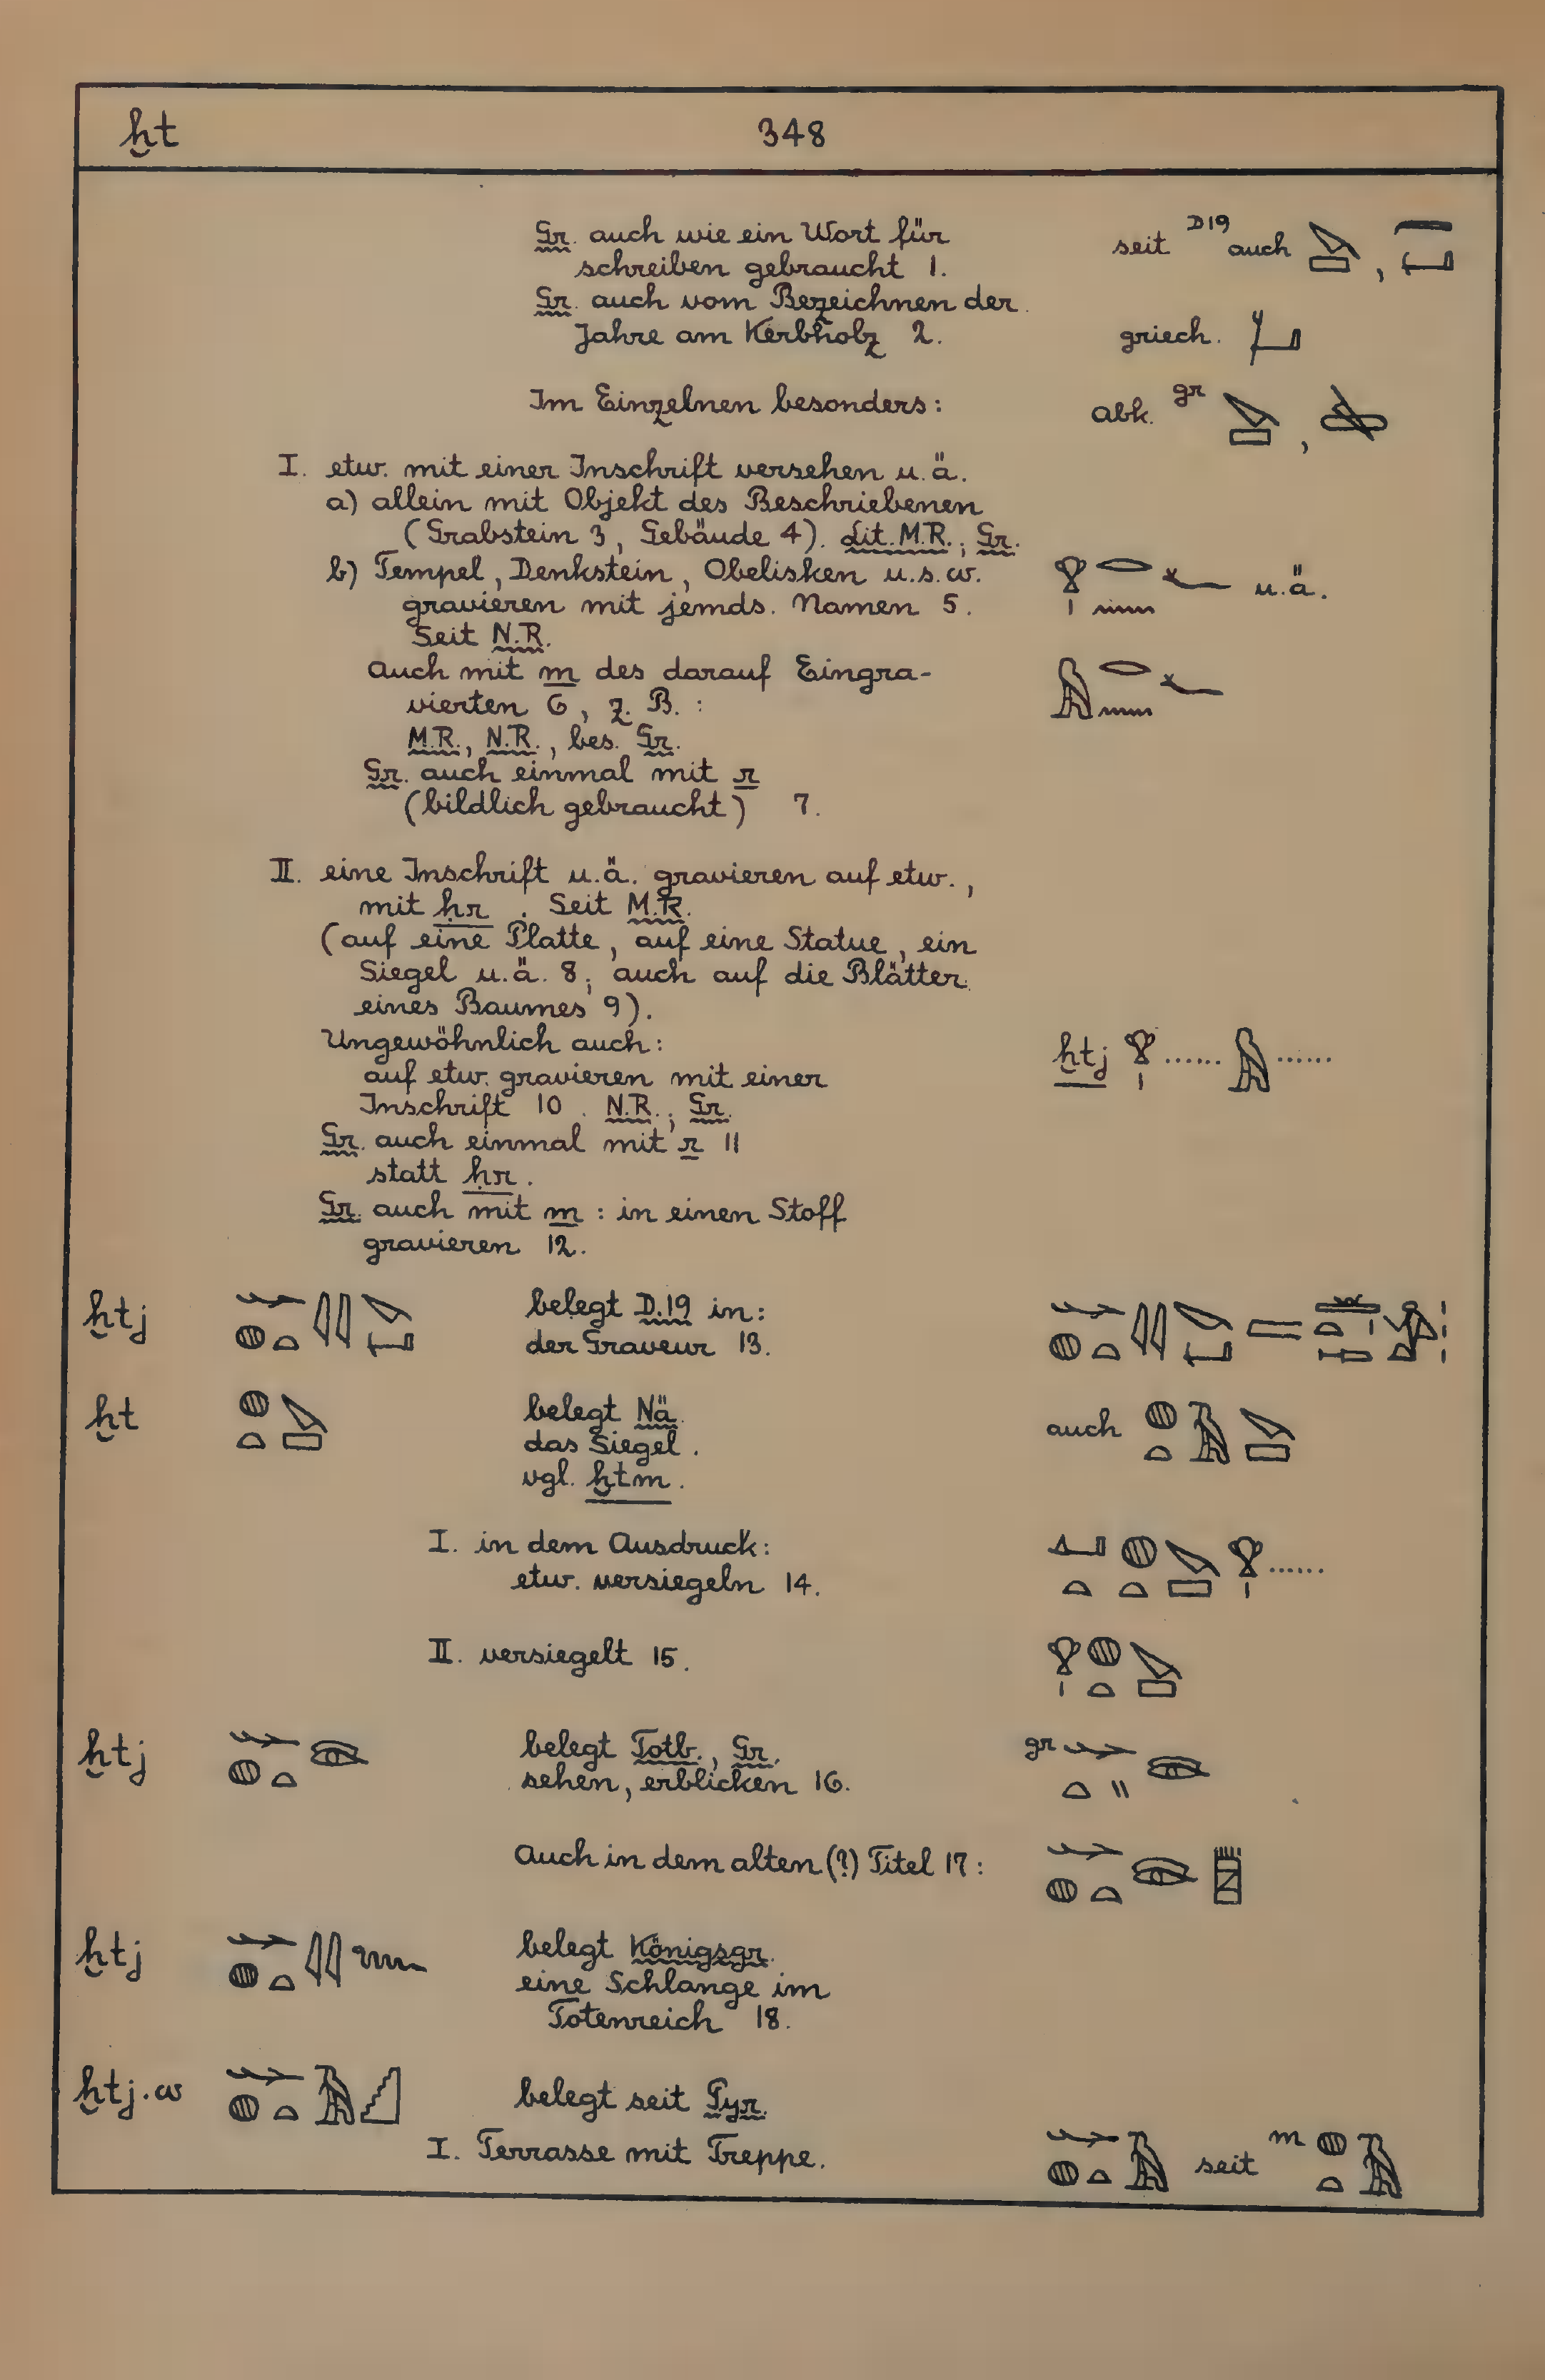 ḫt 348
Gr. auch wie ein Wort für
schreiben gebraucht 1.
seit D19 auch ,
Gr. auch vom Bezeichnen der
Jahre am Kerbholz 2.
griech.
Im Einzelnen besonders:
abk. gr ,
I. etw. mit einer Inschrift versehen u.ä.
a) allein mit Objekt des Beschriebenen
(Grabstein 3, Gebäude 4). Lit. M.R.; Gr.
b) Tempel, Denkstein, Obelisken u.s.w.
gravieren mit jemds. Namen 5.
u.ä.
Seit N.R.
Auch mit m des darauf Eingra-
vierten 6, z.B.:
M.R., N.R., bes. Gr.
Gr. auch einmal mit r
(bildlich gebraucht) 7.
II. eine Inschrift u.ä. gravieren auf etw.,
mit ḥr. Seit M.R.
(auf eine Platte, auf eine Statue, ein
Siegel u.ä. 8; auch auf die Blätter
eines Baumes 9).
Ungewöhnlich auch:
ḫtj ...... ......
auf etw. gravieren mit einer
Inschrift 10. N.R.; Gr.
Gr. auch einmal mit r 11
statt ḥr.
Gr. auch mit m : in einen Stoff
gravieren 12.
ḫtj belegt D.19 in:
der Graveur 13.
ḫt belegt Nä.
das Siegel.
auch
vgl. ḫtm.
I. in dem Ausdruck:
etw. versiegeln 14.
......
II. versiegelt 15.
ḫtj belegt Totb., Gr.
sehen, erblicken 16.
gr
Auch in dem alten (?) Titel 17:
ḫtj belegt Königsgr.
eine Schlange im
Totenreich 18.
ḫtj.w belegt seit Pyr.
I. Terrasse mit Treppe.
seit m